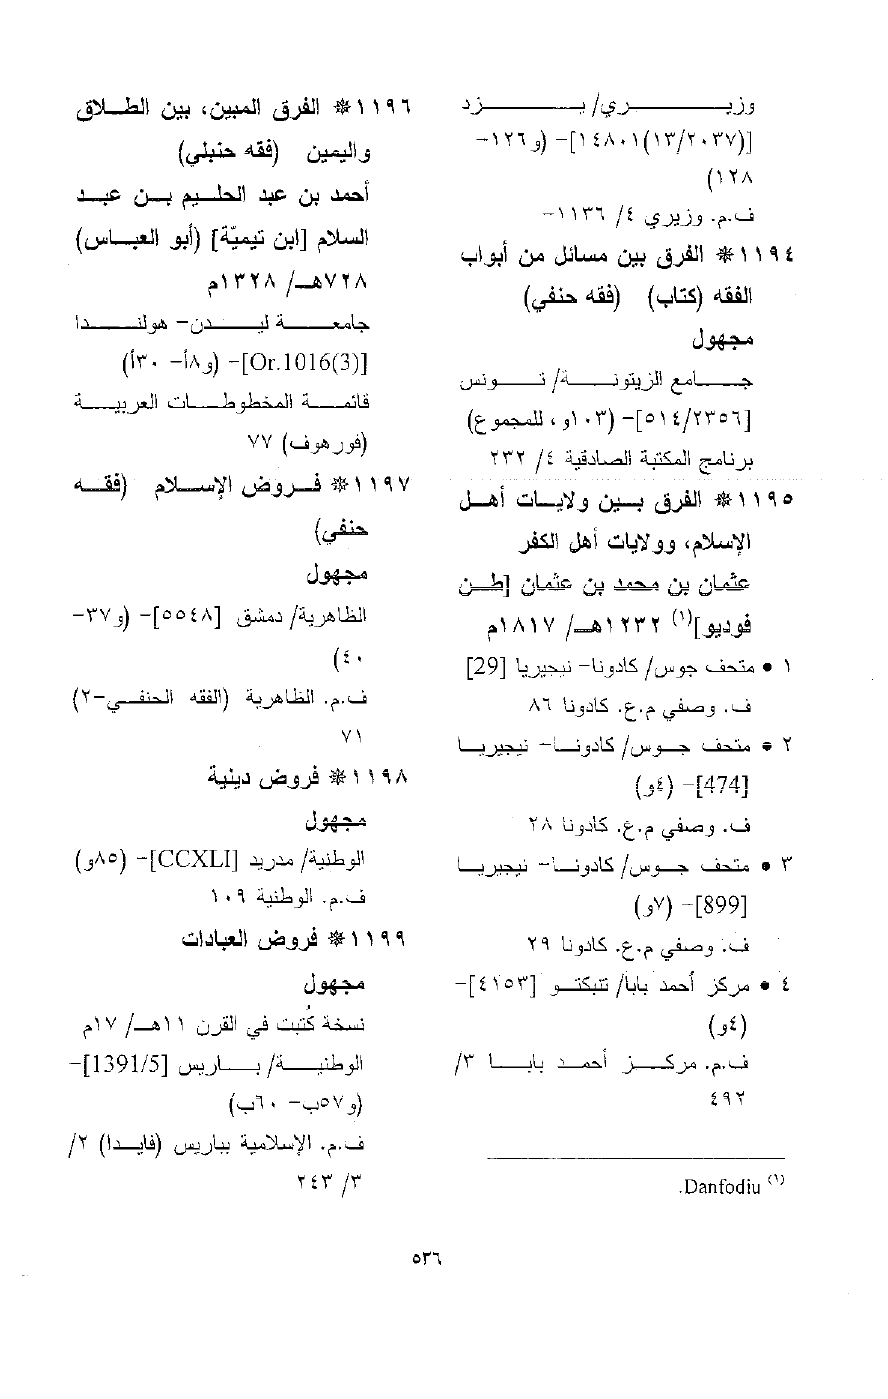 وزيري/ يزد
[(١٣/٢٠٣٧)١٤٨٠١]- (و١٢٦-
١٢٨)
ف.م. وزيري ٤/ ١١٣٦-
١١٩٤* الفرق بين مسائل من أبواب
الفقه (كتاب) (فقه حنفي)
مجهول
جامع الزيتونة/ تونس
[٥١٤/٢٣٥٦]- (١٠٣و، للمجموع)
برنامج المكتبة الصادقية ٤/ ٢٣٢
١١٩٥* الفرق بين ولايات أهل
الإسلام، وولايات أهل الكفر
عثمان بن محمد بن عثمان [طن
فوديو] (١) ١٢٣٢هـ/ ١٨١٧م
١ • متحف جوس/ كادونا- نيجيريا [29]
ف. وصفي م.ع. كادونا ٨٦
٢ • متحف جوس/ كادونا- نيجيريا
[474]- (٤و)
ف. وصفي م.ع. كادونا ٢٨
٣ • متحف جوس/ كادونا- نيجيريا
[899]- (٧و)
ف. وصفي م.ع. كادونا ٢٩
٤ • مركز أحمد بابا/ تنبكتو [٤١٥٣]-
(٤و)
ف.م. مركز أحمد بابا ٣/
٤٩٢
(١) Danfodiu.
١١٩٦* الفرق المبين، بين الطلاق
واليمين (فقه حنبلي)
أحمد بن عبد الحليم بن عبد
السلام [ابن تيميّة] (أبو العباس)
٧٢٨هـ/ ١٣٢٨م
جامعة ليدن- هولندا
[Or.1016(3)]- (و٨أ- ٣٠أ)
قائمة المخطوطات العربية
(فورهوف) ٧٧
١١٩٧* فروض الإسلام (فقه
حنفي)
مجهول
الظاهرية/ دمشق [٥٥٤٨]- (و٣٧-
٤٠)
ف.م. الظاهرية (الفقه الحنفي-٢)
٧١
١١٩٨* فروض دينية
مجهول
الوطنية/ مدريد [CCXLI]- (٨٥و)
ف.م. الوطنية ١٠٩
١١٩٩* فروض العبادات
مجهول
نسخة كُتبت في القرن ١١هـ/ ١٧م
الوطنية/ باريس [1391/5]-
(و٥٧ب- ٦٠ب)
ف.م. الإسلامية بباريس (فايدا) ٢/
٣/ ٢٤٣
٥٣٦